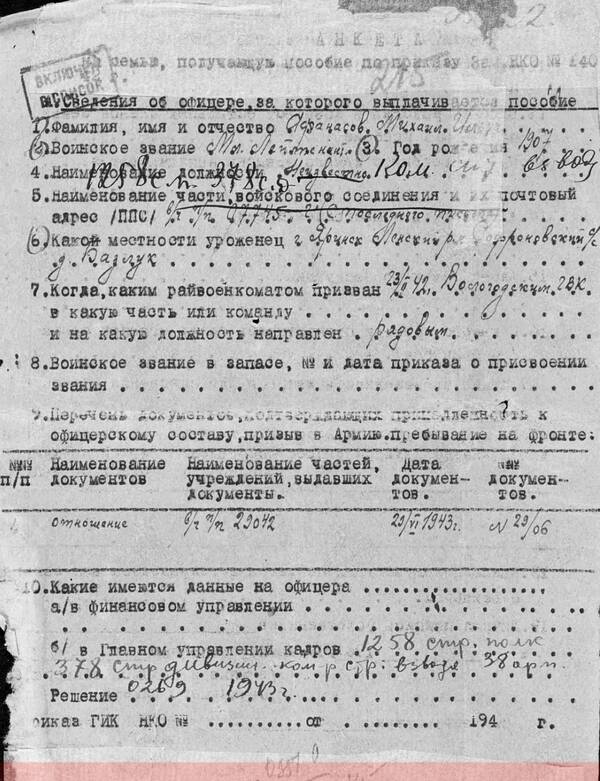 2.
АНКЕТА
на семью, получающую пособие по приказу Зам. НКО № 140
215
ВКЛЮЧЕН
В СПИСОК
1. Сведения об офицере, за которого выплачивается пособие
1. Фамилия, имя и отчество Афанасов. Михаил
2. Воинское звание Мл. Лейтенант 3. Год рождения
4. Наименование должности Неизвестно Ком.
1258 с.п. 378 с.д.
5. Наименование части, войскового соединения и их почтовый
адрес /ППС/ п/п
6. Какой местности уроженец г. Яренск Ленский р-н
д. Базлук
7. Когда, каким райвоенкоматом призван 42. Вологодским ГВК
в какую часть или команду
и на какую должность направлен . рядовым
8. Воинское звание в запасе, № и дата приказа о присвоении
звания
9. Перечень документов, подтверждающих принадлежность к
офицерскому составу, призыв в Армию. пребывание на фронте:
№№ п/п Наименование документов Наименование частей, учреждений, выдавших документы. Дата докумен-тов. №№ докумен-тов.
отношение в/ч п/п 29042 29/VI 1943г. N 29/06
10. Какие имеются данные на офицера
а/в финансовом управлении
б/ в Главном управлении кадров 1258 стр. полк
378 стр дивизии. ком-р стр. взвода 38 арм.
Решение 0269 1943г.
приказ ГИК НКО № от 194 г.